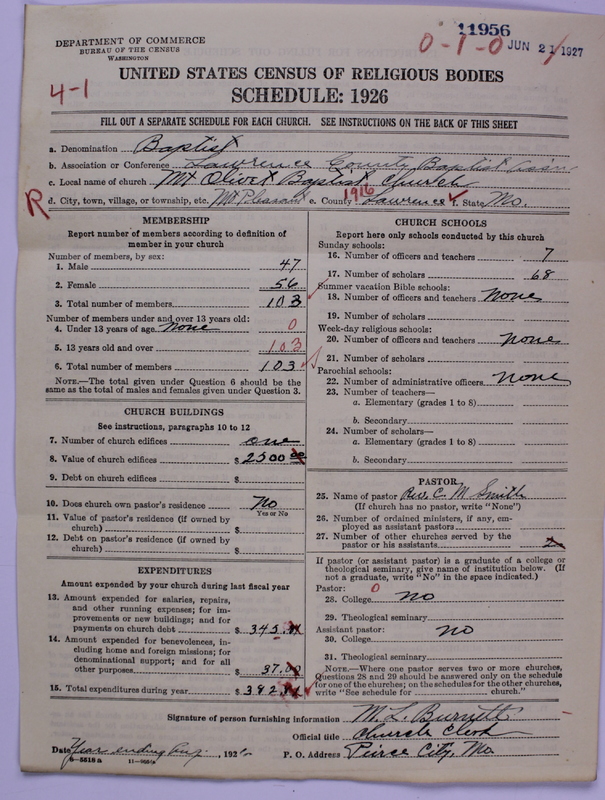 DEPARTMENT OF COMMERCE
BUREAU OF THE CENSUS
WASHINGTON
11956
0-1-0 JUN 21 1927
4-1
UNITED STATES CENSUS OF RELIGIOUS BODIES
SCHEDULE: 1926
FILL OUT A SEPARATE SCHEDULE FOR EACH CHURCH. SEE INSTRUCTIONS ON THE BACK OF THIS SHEET
a. Denomination Baptist
b. Association or Conference Lawrence County Baptist Ass'n
c. Local name of church Mt Olivet Baptist Church
R d. City, town, village, or township, etc. Mt. Pleasant e. County 1916 Lawrence f. State Mo.
MEMBERSHIP
Report number of members according to definition of
member in your church
Number of members, by sex:
1. Male 47
2. Female 56
3. Total number of members 103
Number of members under and over 13 years old:
4. Under 13 years of age None 0
5. 13 years old and over 103
6. Total number of members 103
NOTE.—The total given under Question 6 should be
same as the total of males and females given under Question 3.
CHURCH BUILDINGS
See instructions, paragraphs 10 to 12
7. Number of church edifices one
8. Value of church edifices $2500 00
9. Debt on church edifices $
10. Does church own pastor's residence No
Yes or No
11. Value of pastor's residence (if owned by
church) $
12. Debt on pastor's residence (if owned by
church) $
EXPENDITURES
Amount expended by your church during last fiscal year
13. Amount expended for salaries, repairs,
and other running expenses; for im-
provements or new buildings; and for
payments on church debt $ 345.
14. Amount expended for benevolences, in-
cluding home and foreign missions; for
denominational support; and for all
other purposes $ 37.00
15. Total expenditures during year $ 382
CHURCH SCHOOLS
Report here only schools conducted by this church
Sunday schools:
16. Number of officers and teachers 7
17. Number of scholars 68
Summer vacation Bible schools:
18. Number of officers and teachers None
19. Number of scholars
Week-day religious schools:
20. Number of officers and teachers None
21. Number of scholars
Parochial schools:
22. Number of administrative officers None
23. Number of teachers—
a. Elementary (grades 1 to 8)
b. Secondary
24. Number of scholars—
a. Elementary (grades 1 to 8)
b. Secondary
PASTOR
25. Name of pastor Rev. C. M Smith
(If church has no pastor, write "None")
26. Number of ordained ministers, if any, em-
ployed as assistant pastors
27. Number of other churches served by the
pastor or his assistants
If pastor (or assistant pastor) is a graduate of a college or
theological seminary, give name of institution below. (If
not a graduate, write "No" in the space indicated.)
Pastor: 0
28. College No
29. Theological seminary
Assistant pastor: No
30. College
31. Theological seminary
NOTE.—Where one pastor serves two or more churches,
Questions 28 and 29 should be answered only on the schedule
for one of the churches; on the schedules for the other churches,
write "See schedule for church."
Signature of person furnishing information M. L. Burnett
Official title Church Clerk
Date Year ending Aug., 1926 P. O. Address Pierce City, Mo.